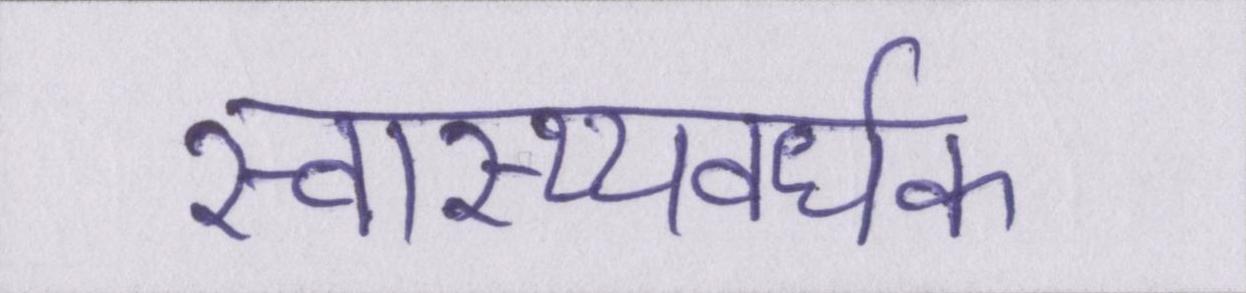 स्वास्थ्यवर्धक